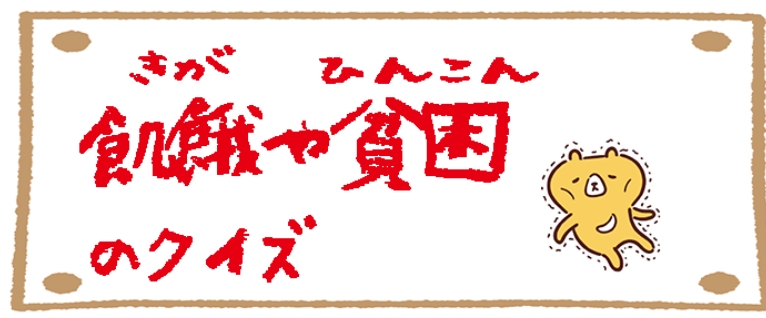 きが ひんこん
飢餓や貧困
のクイズ